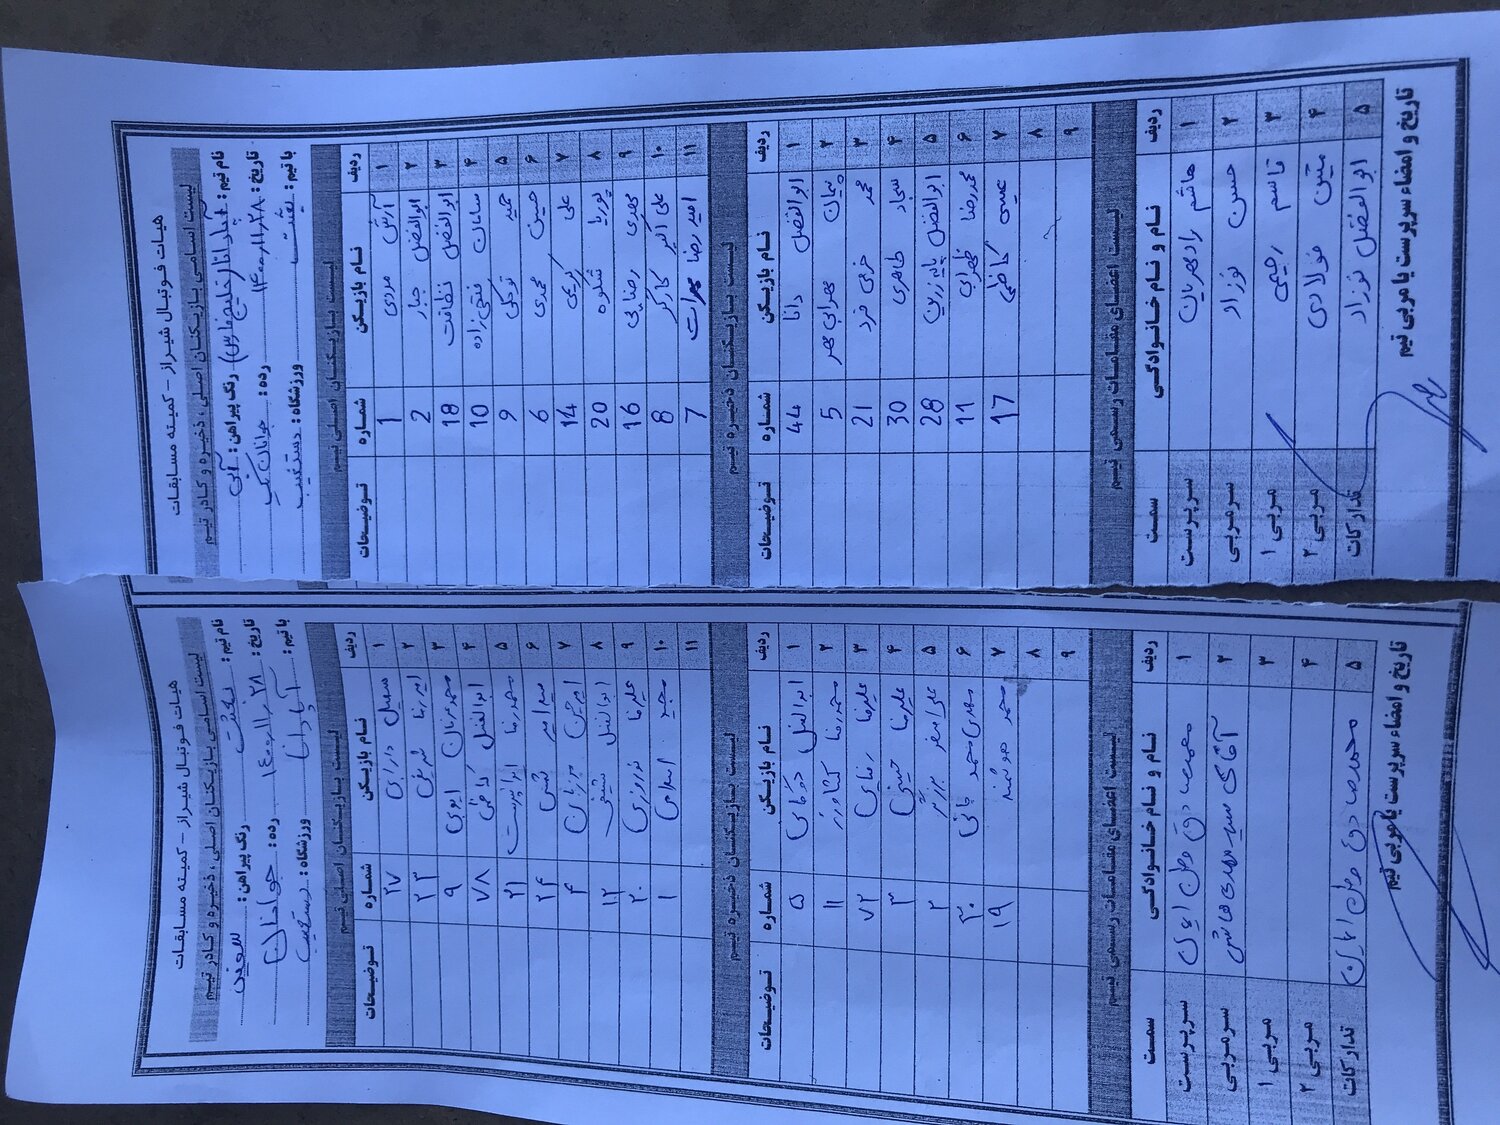 هیات فوتبال شیراز - کمیته مسابقات
لیست اسامی بازیکنان اصلی، ذخیره و کادر تیم
نام تیم: (خلیج فارس) رنگ پیراهن: آبی
تاریخ: ۱۴۰۰/۱۱/۲۸ رده: جوانان
با تیم: بعثت ورزشگاه: دستغیب
لیست بازیکنان اصلی تیم
ردیف نام بازیکن شماره توضیحات
۱ آرش مردی 1
۲ ابوالفضل جبار 2
۳ ابوالفضل نظافت 18
۴ سامان فتحی زاده 10
۵ حمید توکلی 9
۶ حسین محمدی 6
۷ علی کریمی 14
۸ پوریا شکوه 20
۹ مهدی رضایی 16
۱۰ علی اکبر کارگر 8
۱۱ امیررضا 7
لیست بازیکنان ذخیره تیم
ردیف نام بازیکن شماره توضیحات
۱ ابوالفضل دانا 44
۲ پیمان مهرابی مهر 5
۳ محمد خرمی فرد 21
۴ سجاد طاهری 30
۵ ابوالفضل 28
۶ محمدرضا ظهرابی 11
۷ عیسی کاظمی 17
۸
۹
لیست اعضای مقامات رسمی تیم
ردیف نام و نام خانوادگی سمت
۱ هاشم رادمهریان سرپرست
۲ حسن نوزاد سرمربی
۳ قاسم رحیمی مربی ۱
۴ متین مولادی مربی ۲
۵ ابوالفضل نوزاد تدارکات
تاریخ و امضاء سرپرست یا مربی تیم
هیات فوتبال شیراز - کمیته مسابقات
لیست اسامی بازیکنان اصلی، ذخیره و کادر تیم
نام تیم: بعثت رنگ پیراهن: سفید
تاریخ: ۱۴۰۰/۱۱/۲۸ رده: جوانان
با تیم: ورزشگاه: دستغیب
لیست بازیکنان اصلی تیم
ردیف نام بازیکن شماره توضیحات
۱ سهیل دارابی ۲۷
۲ امیررضا شریفی ۲۳
۳ محمد عرفان ایوبی ۹
۴ ابوالفضل کاظمی ۷۸
۵ محمدرضا ۲۱
۶ سید امیر ۲۴
۷ امیرحسین ۴
۸ ابوالفضل ۱۲
۹ علیرضا نوروزی ۲۰
۱۰ مجید اسلامی ۱
۱۱
لیست بازیکنان ذخیره تیم
ردیف نام بازیکن شماره توضیحات
۱ ابوالفضل ۵
۲ محمدرضا کشاورز ۱۱
۳ علیرضا رضایی ۷۲
۴ علیرضا حسینی ۳
۵ علی اصغر ۲
۶ مهدی محمد جانی ۳۰
۷ محمد هوشمند ۱۹
۸
۹
لیست اعضای مقامات رسمی تیم
ردیف نام و نام خانوادگی سمت
۱ محمدصادق سرپرست
۲ آقای سید مهدی هاشمی سرمربی
۳ مربی ۱
۴ مربی ۲
۵ محمدصادق تدارکات
تاریخ و امضاء سرپرست یا مربی تیم